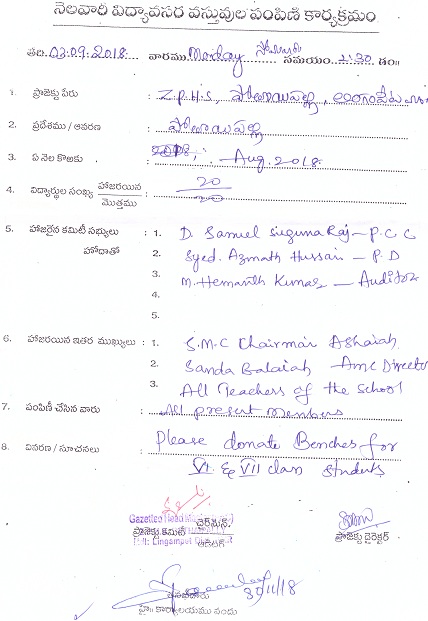 నెలవారీ విద్యావసర వస్తువుల పంపిణి కార్యక్రమం
తేది: 03.09.2018 వారము Monday సోమవారం సమయం 1:30
1. ప్రాజెక్టు పేరు : Z.P.H.S, పోతాయిపల్లి, లింగంపేట
2. ప్రదేశము / ఆవరణ పోతాయిపల్లి
3. ఏ నెల కొఱకు Aug. 2018
4. విద్యార్థుల సంఖ్య హాజరయిన 20
మొత్తము 20
5. హాజరైన కమిటీ సభ్యులు : 1. D. Samuel Suguna Raj - P.C.C
హోదాతో 2. Syed. Azmath Hussain - P.D
3. M. Hemanth Kumar - Auditor
4.
5.
6. హాజరయిన ఇతర ముఖ్యులు : 1. S.M.C Chairman Ashaiah
2. Sanda Balaiah - AMC Director
3. All Teachers of the School
7. పంపిణీ చేసిన వారు : All present members
8. వివరణ / సూచనలు : Please donate Benches for
VI & VII class students
Gazetted Head
ప్రాజెక్టు కమిటీ చైర్మన్
ప్రాజెక్టు డైరెక్టర్
30/11/18
హై॥ కార్యాలయము నందు